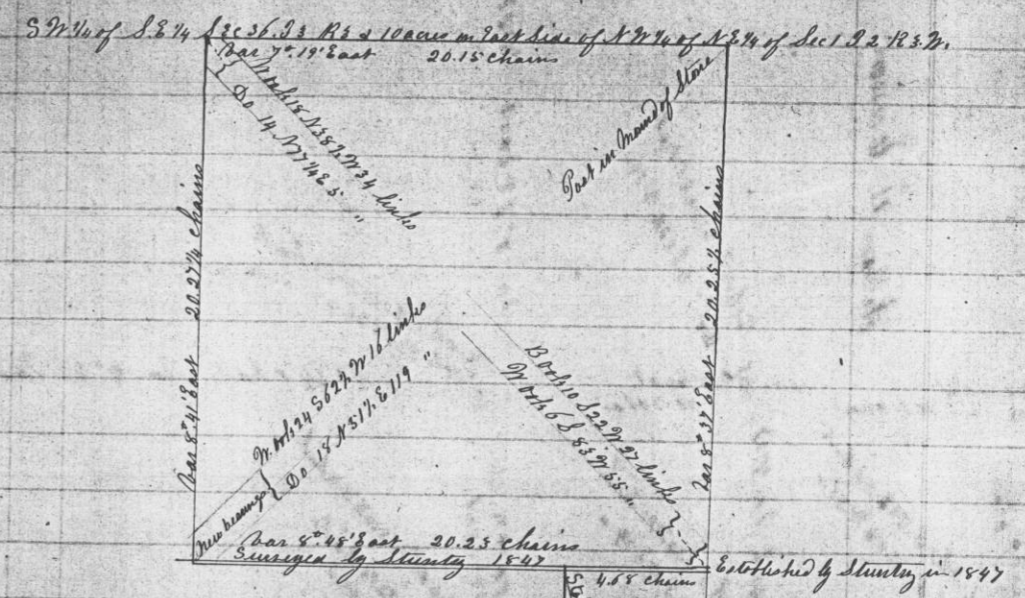 S W 1/4 of S.E 1/4 Sec 36. T3 R3 & 10 acres on East Side of N W 1/4 of N.E 1/4 of Sec 1 T 2 R 3. W.
Var 7° 19' East 20.15 chains
W Oak 18 N 38 1/2 W 34 links
Do 14 N 77 1/4 E 5 "
Post in Mound of Stone
20.27 1/4 chains
Var 8° 41' East
20.25 1/2 chains
Var 8° 37' East
New bearings
W. Oak 24 S 62 1/2 W 16 links
Do 18 N 51 1/2 E 119 "
B Oak 10 S 22 W 27 links
W Oak 6 S 83 W 55 "
Var 8° 48' East 20.25 chains
Surveyed by Stuntz 1847
Established by Stuntz in 1847
4.68 chains